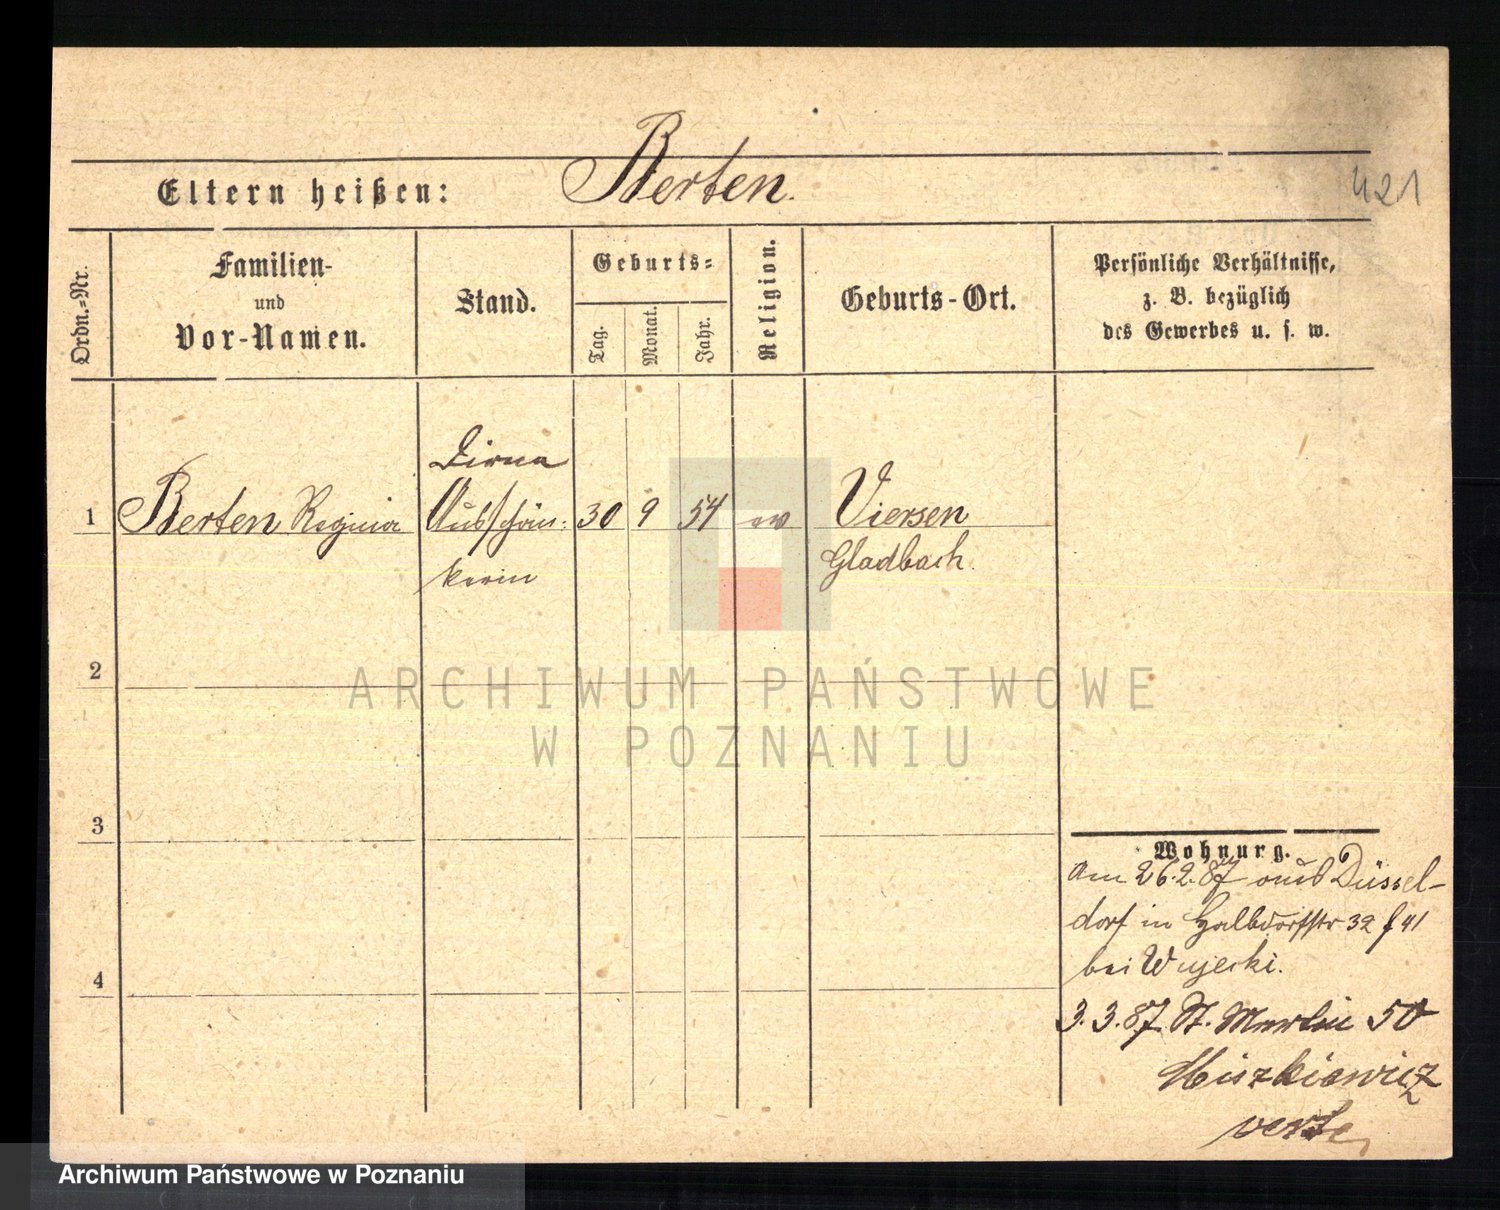 421
Eltern heißen: Berten.
Ordn.-Nr.
Familien-
und
Vor-Namen.
Stand.
Geburts-
Tag.
Monat.
Jahr.
Religion.
Geburts-Ort.
Persönliche Verhältnisse,
z. B. bezüglich
des Gewerbes u. s. w.
Dirne
1 Berten Regina Ausschän- 30 9 54 ev Viersen
kerin Gladbach.
2
3
4
ARCHIWUM PAŃSTWOWE
W POZNANIU
Wohnung.
Am 26.2.87 aus Düssel-
dorf in Halbdorfstr 32 f 41
bei Wujecki.
3.3.87. St. Martin 50
Miszkiewicz
verte
Archiwum Państwowe w Poznaniu